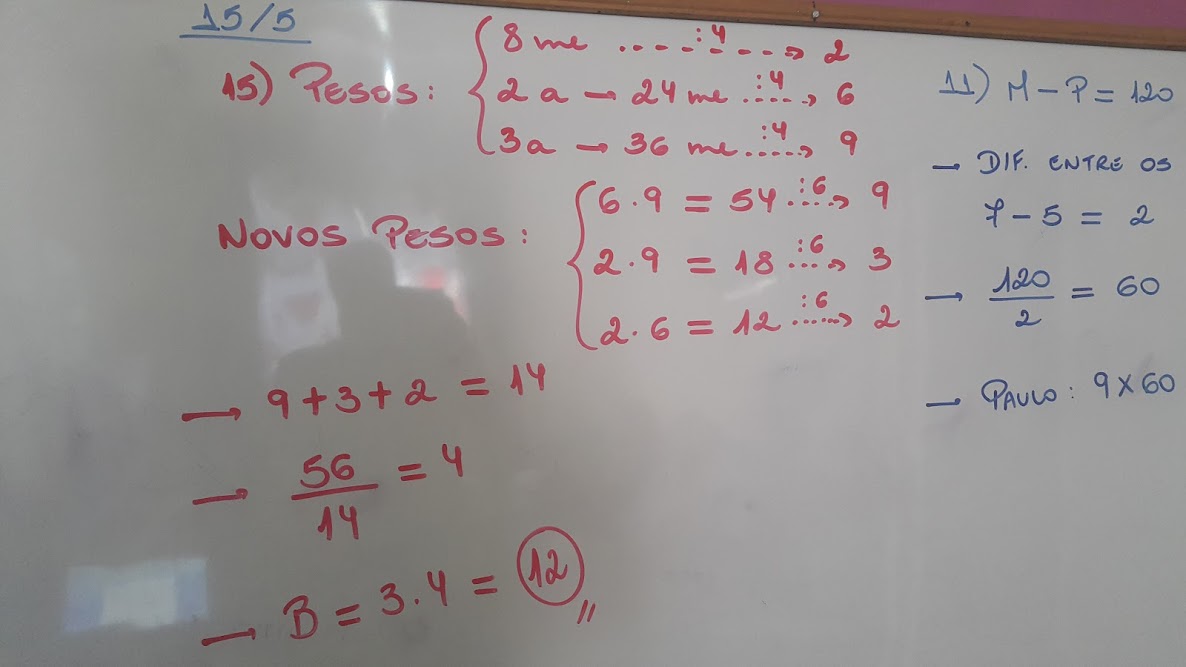 15/5
15) PESOS:
8 me ........→ 2
:4
2a → 24 me ......→ 6
:4
3a → 36 me ......→ 9
:4
NOVOS PESOS:
6·9 = 54 .....→ 9
:6
2·9 = 18 .....→ 3
:6
2·6 = 12 ......→ 2
:6
→ 9+3+2 = 14
→ 56/14 = 4
→ B = 3.4 = 12 //
11) M - P = 120
→ DIF. ENTRE OS
7 - 5 = 2
→ 120/2 = 60
→ PAULO: 9 X 60